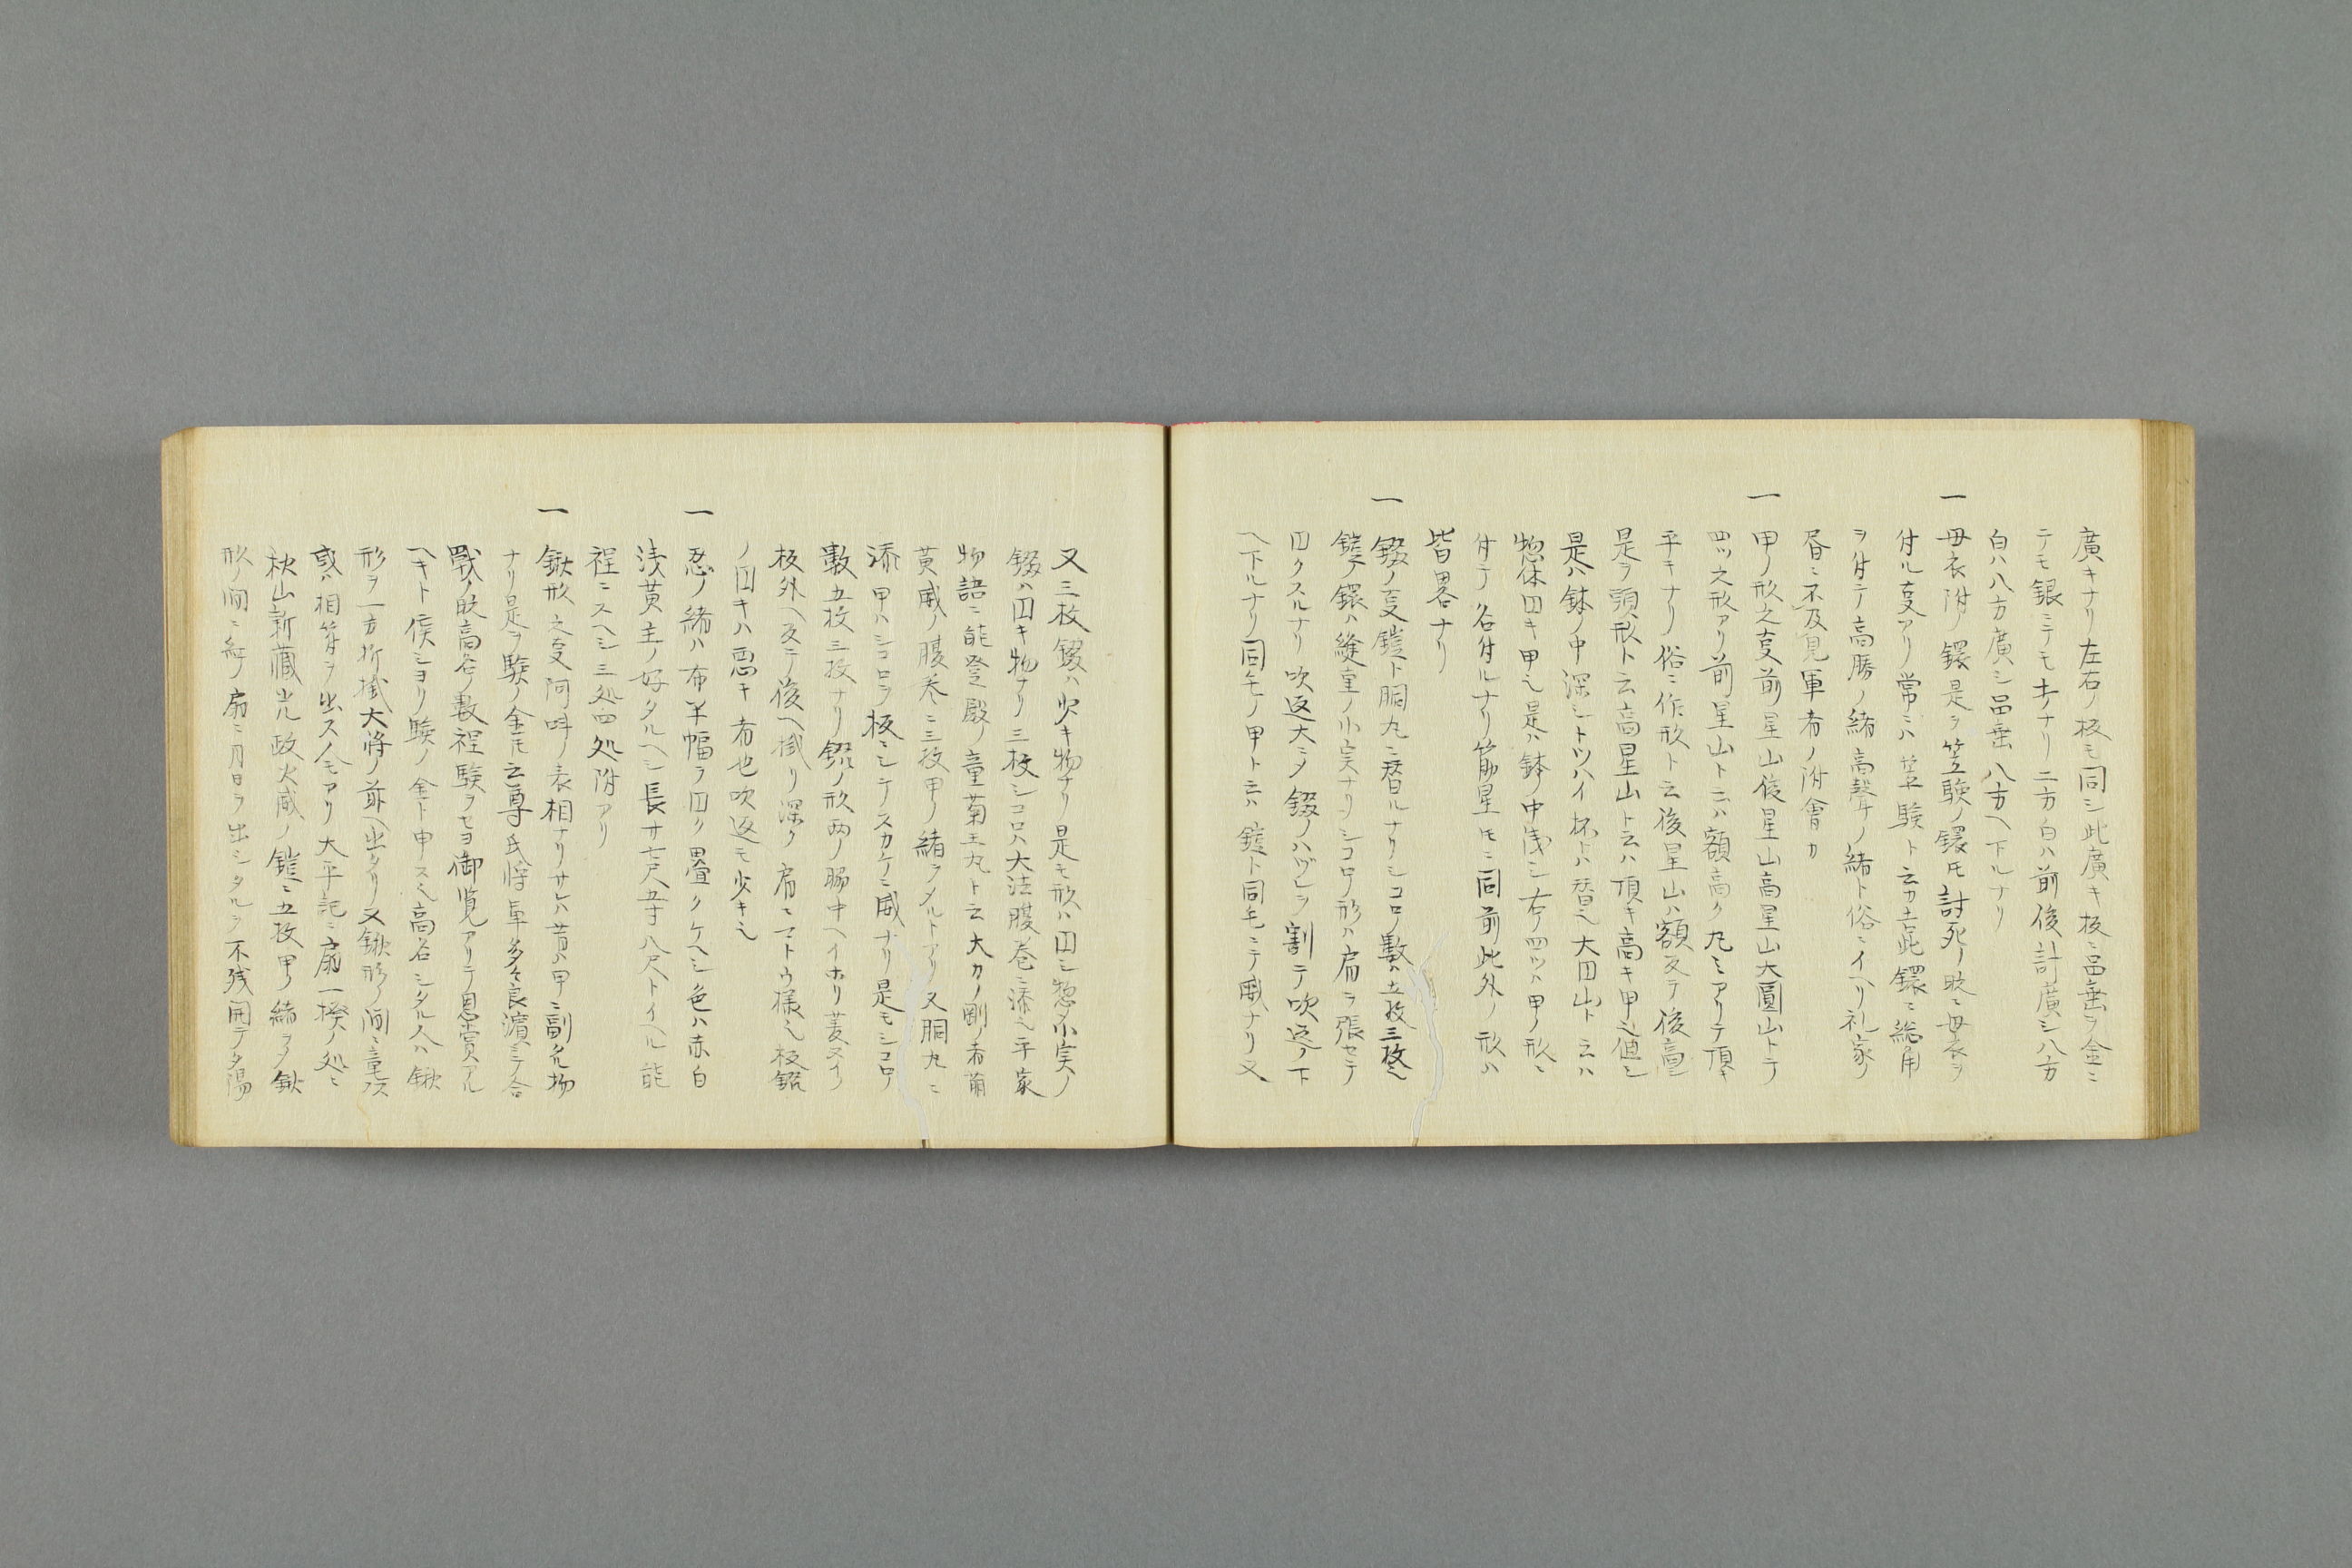 廣キナリ左右ノ板モ同シ此廣キ板ニ品垂ヲ金ニ
テモ銀ニテモ■ナリ二方白ハ前後計廣シ八方
白ハ八方廣シ品垂八方ヘ下ルナリ
一 母衣附ノ鐶是ヲ笠驗ノ鐶𪜈討死ノ時ニ母衣ヲ
付ル㕝アリ常ニハ笠驗ト云カ此鐶ニ総角
ヲ付テ高勝ノ緒高聲ノ緒ト俗ニイヘリ礼家ノ
昏ニ不及見軍者ノ附會カ
一 甲ノ形之㕝前星山後星山高星山大圓山トテ
四ツ之形アリ前星山ト云ハ額高ク丸ミアリテ頂キ
平キナリ俗ニ作形ト云後星山ハ額反テ後高シ
是ヲ頭形ト云高星山ト云ハ頂キ高キ甲也
是ハ鉢ノ中深シトツハイ杯ハ大円山ト云ハ
惣体円キ甲也是ハ鉢ノ中浅シ右四ツハ甲ノ形ニ
付テ名付ルナリ筋星𪜈ニ同前此外ノ形ハ
皆畧ナリ
一 錣ノ㕝鎧ト胴丸ニ替ルナリシコロノ數ハ五枚三枚也
鎧ノ鐶ハ縫重ノ小実ナリシコロノ形ハ肩ヲ張セテ
円クスルナリ吹返大ニメ錣ノハツレヲ割テ吹返ノ下
ヘ下ルナリ同毛ノ甲ト云ハ鎧ト同毛ニテ威ナリ又
又三枚錣ハ少キ物ナリ是モ形ハ円シ惣メ小実ノ
錣ハ円キ物ナリ三枚シコロハ大法腹巻ニ添也平家
物語ニ能登殿ノ童菊王丸ト云大力ノ剛ノ者萠
黄威ノ腹巻ニ三枚甲ノ緒ヲメルトアリ又胴丸ニ
添甲ハシコロヲ板ニシテスカケニ威ナリ是モシコロノ
數五枚三枚ナリ錣ノ形両ノ脇中ヘイホリ菱ヌイノ
板外ヘ反テ後ヘ掛リ深ク肩ニマトウ様也板錣
ノ円キハ悪キ者也吹返モ少キ也
一 忍ノ緒ハ布半幅ヲ円ク疊クケヘシ色ハ赤白
浅黄主ノ好タルヘシ長サ七尺五寸八尺トイヘル能
程ニスヘシ三処四処附アリ
一 鍬形之㕝阿吽ノ表相ナリサレハ昔ハ甲ニ副タル物
ナリ是ヲ驗ノ金𪜈云尊氏将軍多々良濱ニテ合
戰ノ時高名ノ數程驗ヲセヨ御覧アリテ恩賞アル
ヘキト侯シヨリ驗ノ金ト申ス也高名シタル人ハ鍬
形ヲ一方折掛大将ノ前ヘ出タリ又鍬形ノ間ニ竜頭
或ハ相符ヲ出ス㕝モアリ大平記ニ扇一揆ノ処ニ
秋山新藏光政火威ノ鎧ニ五枚甲ノ緒ヲメ鍬
形ノ間ニ紅ノ扇ニ月日ヲ出シタルヲ不残開テ夕陽